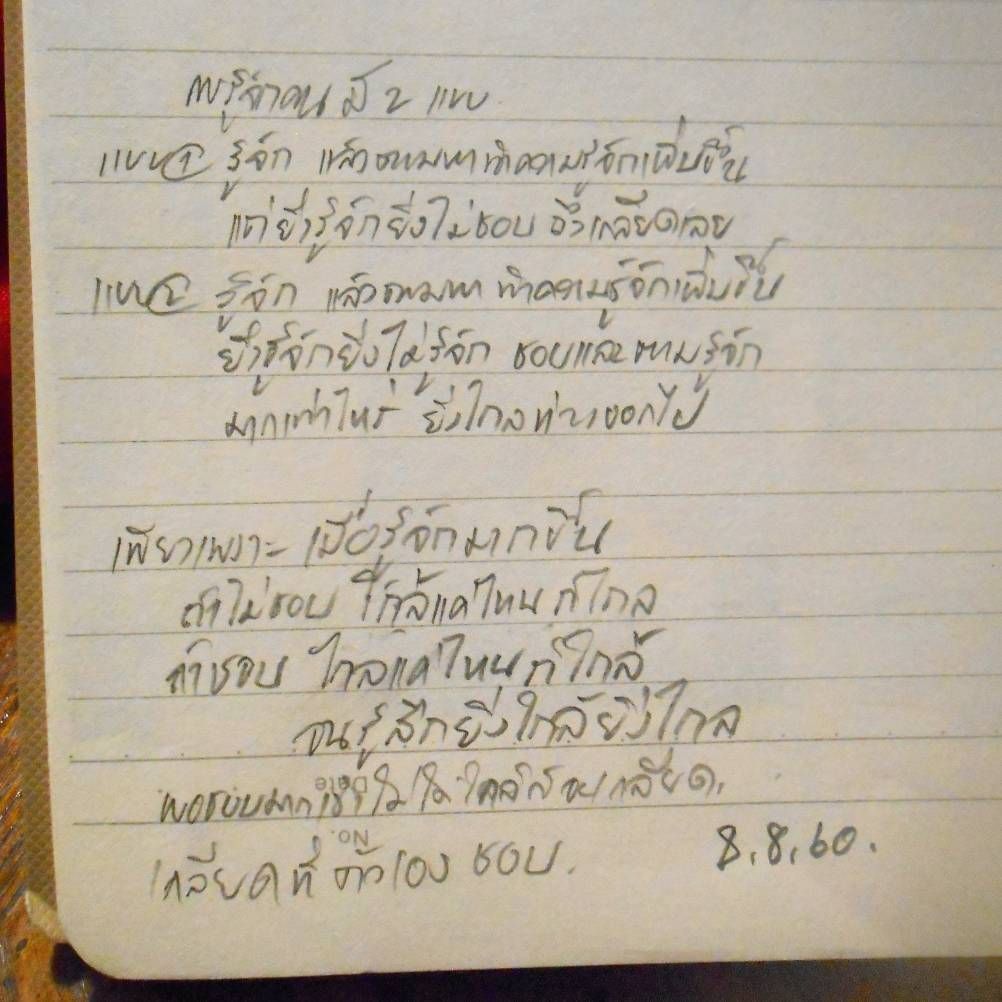 การรู้จักคน มี 2 แบบ
แบบ 1 รู้จัก แล้วตามหา ทำความรู้จักเพิ่มขึ้น
แต่ยิ่งรู้จักยิ่งไม่ชอบ ถึงเกลียดเลย
แบบ 2 รู้จัก แล้วตามหา ทำความรู้จักเพิ่มขึ้น
ยิ่งรู้จักยิ่งไม่รู้จัก ชอบและตามรู้จัก
มากเท่าไหร่ ยิ่งไกลห่างออกไป
เพียงเพราะ เมื่อรู้จักมากขึ้น
ถ้าไม่ชอบ ใกล้แค่ไหน ก็ไกล
ถ้าชอบ ไกลแค่ไหน ก็ใกล้
จนรู้สึกยิ่งใกล้ยิ่งไกล
พอชอบมาก เกลียด.
Date
No.
เกลียดที่ ตัวเอง ชอบ. 8.8.60.